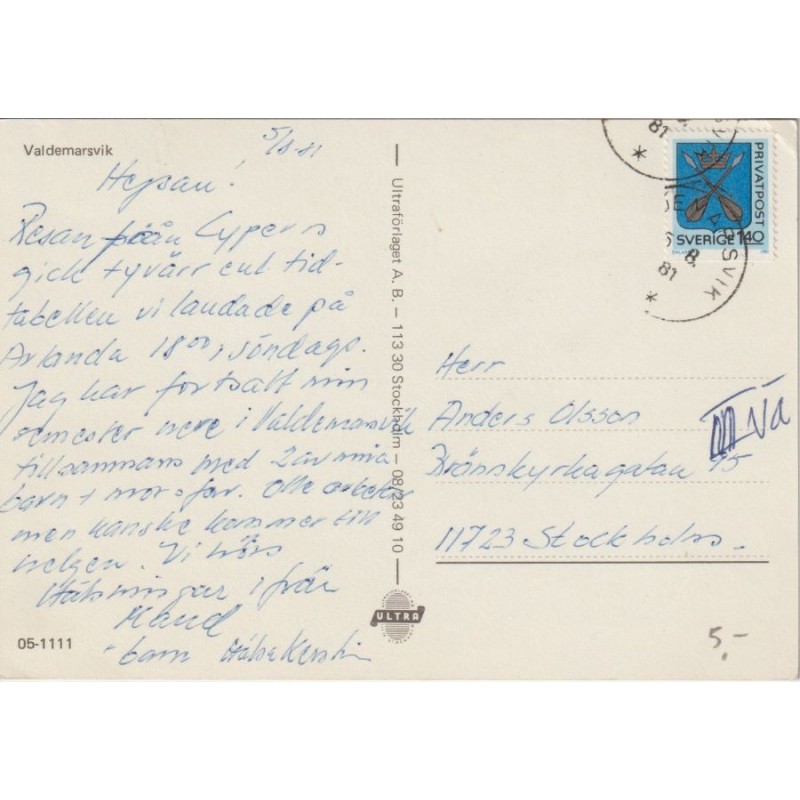 Valdemarsvik
5/8-81
Hejsan!
Resan från Cypern
gick tyvärr enl tid-
tabellen vi landade på
Arlanda 1800 i söndags.
Jag har fortsatt min
semester nere i Valdemarsvik
tillsammans med 2 av mina
barn + mor o far. Olle arbetar
men kanske kommer till
helgen. Vi hörs
Hälsningar ifrån
Maud
barn Hälsa Kerstin
05-1111
Ultraförlaget A. B. – 113 30 Stockholm – 08/23 49 10
ULTRA
81
8.
VALDEMARSVIK
6 8.
81
PRIVATPOST
SVERIGE 140
Herr
Anders Olsson
Brännkyrkagatan 45
11723 Stockholm.
III va
5,-